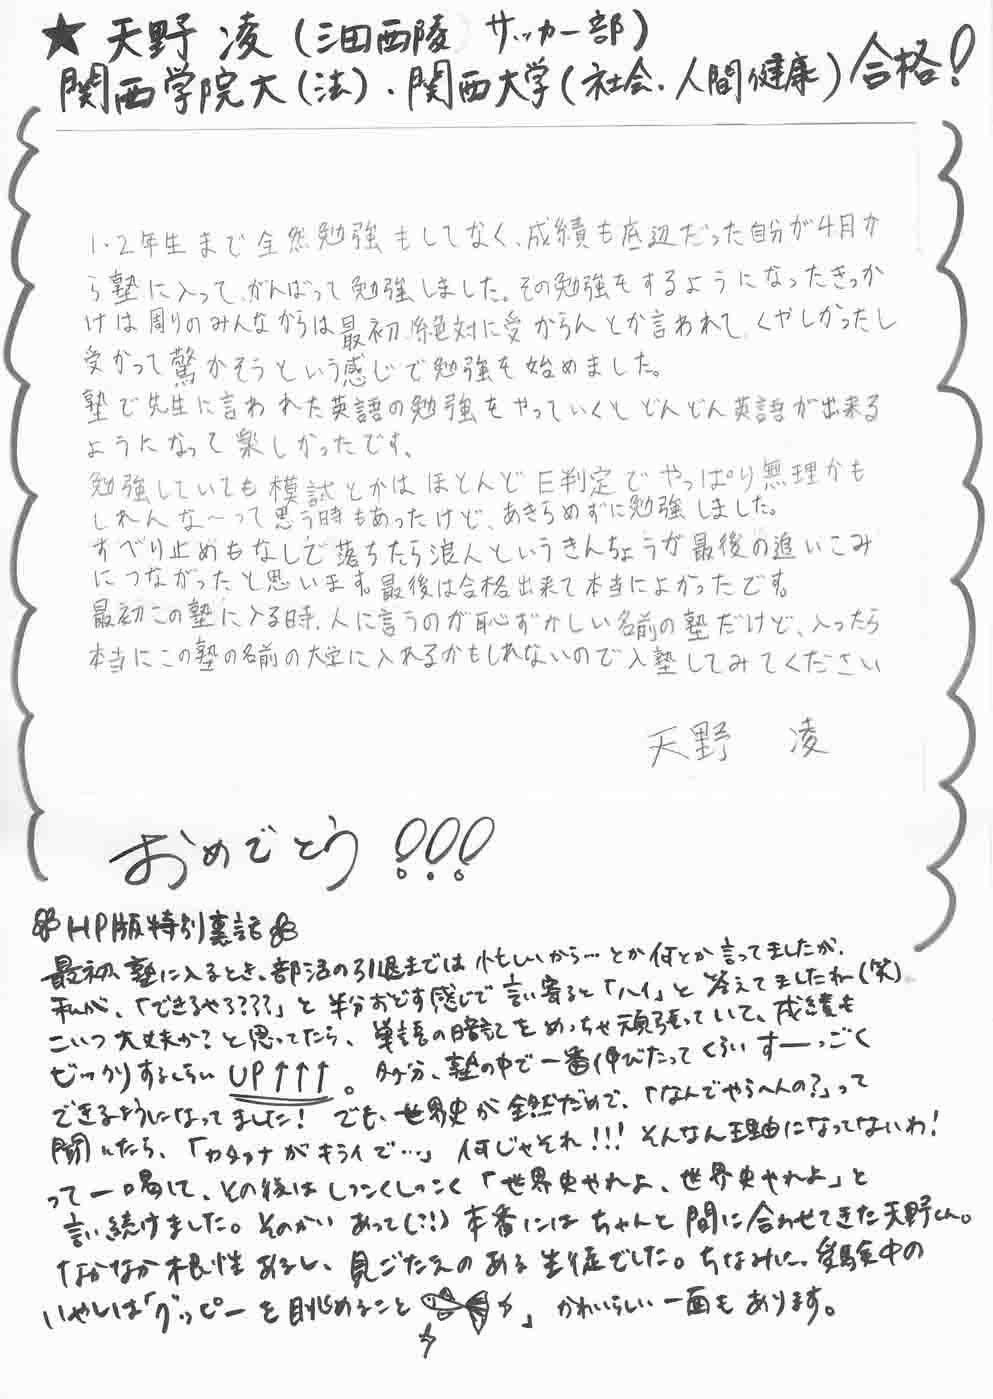 ★ 天野 凌 (三田西陵 サッカー部)
関西学院大(法)・関西大学(社会・人間健康) 合格!
1・2年生まで全然勉強もしてなく、成績も底辺だった自分が4月か
ら塾に入って、がんばって勉強しました。その勉強をするようになったきっか
けは周りのみんなからは最初絶対に受からんとか言われて、くやしかったし
受かって驚かそうという感じで勉強を始めました。
塾で先生に言われた英語の勉強をやっていくとどんどん英語が出来る
ようになって楽しかったです。
勉強していても模試とかはほとんどE判定でやっぱり無理かも
しれんな〜って思う時もあったけど、あきらめずに勉強しました。
すべり止めもなしで落ちたら浪人というきんちょうが最後の追いこみ
につながったと思います。最後は合格出来て本当によかったです。
最初この塾に入る時、人に言うのが恥ずかしい名前の塾だけど、入ったら
本当にこの塾の名前の大学に入れるかもしれないので入塾してみてください
天野 凌
おめでとう!!!
HP版特別裏話
最初、塾に入るとき、部活の引退までは忙しいから…とか何とか言ってましたが、
私が、「できるやろ???」と半分おどす感じで言い寄ると「ハイ」と答えてましたね(笑)
こいつ大丈夫か?と思ってたら、単語の暗記をめっちゃ頑張っていて、成績も
びっくりするくらいUP↑↑↑。多分、塾の中で一番伸びたってくらいすーっごく
できるようになってました! でも、世界史が全然だめで、「なんでやらへんの?」って
聞いたら、「カタカナがキライで…」何じゃそれ!!! そんなん理由になってないわ!
って一喝して、その後はしつこくしつこく「世界史やれよ、世界史やれよ」と
言い続けました。そのかいあって(?!)本番にはちゃんと間に合わせてきた天野くん。
なかなか根性あるし、見ごたえのある生徒でした。ちなみに、受験中の
いやしは「グッピーを眺めること」かわいらしい一面もあります。